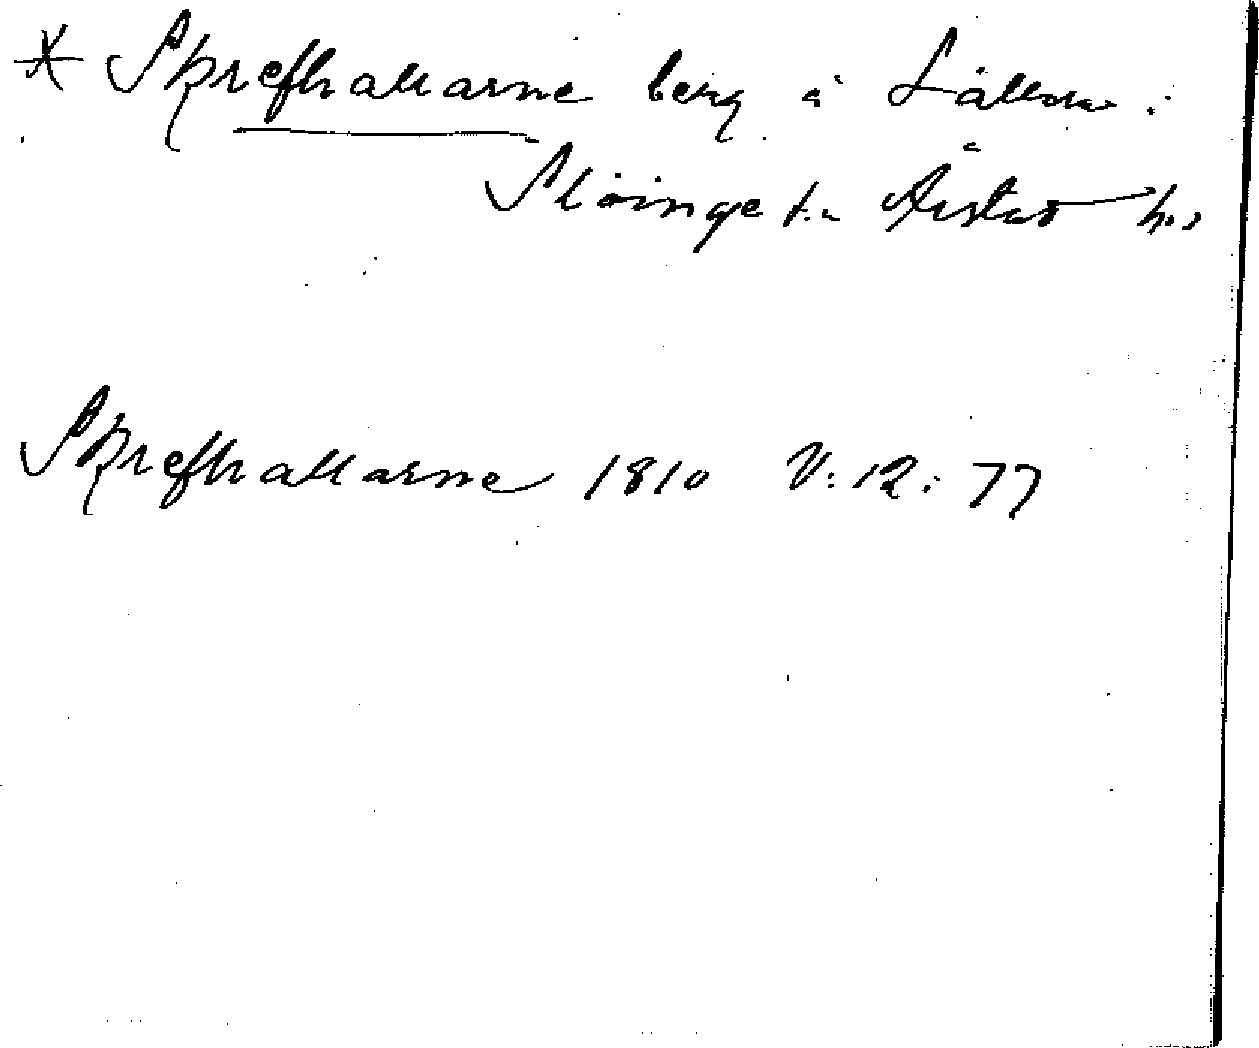 * Skrefhallarne berg å i
Slöinge s:n Årstad h.,
Skrefhallarne 1810 V: 12: 77